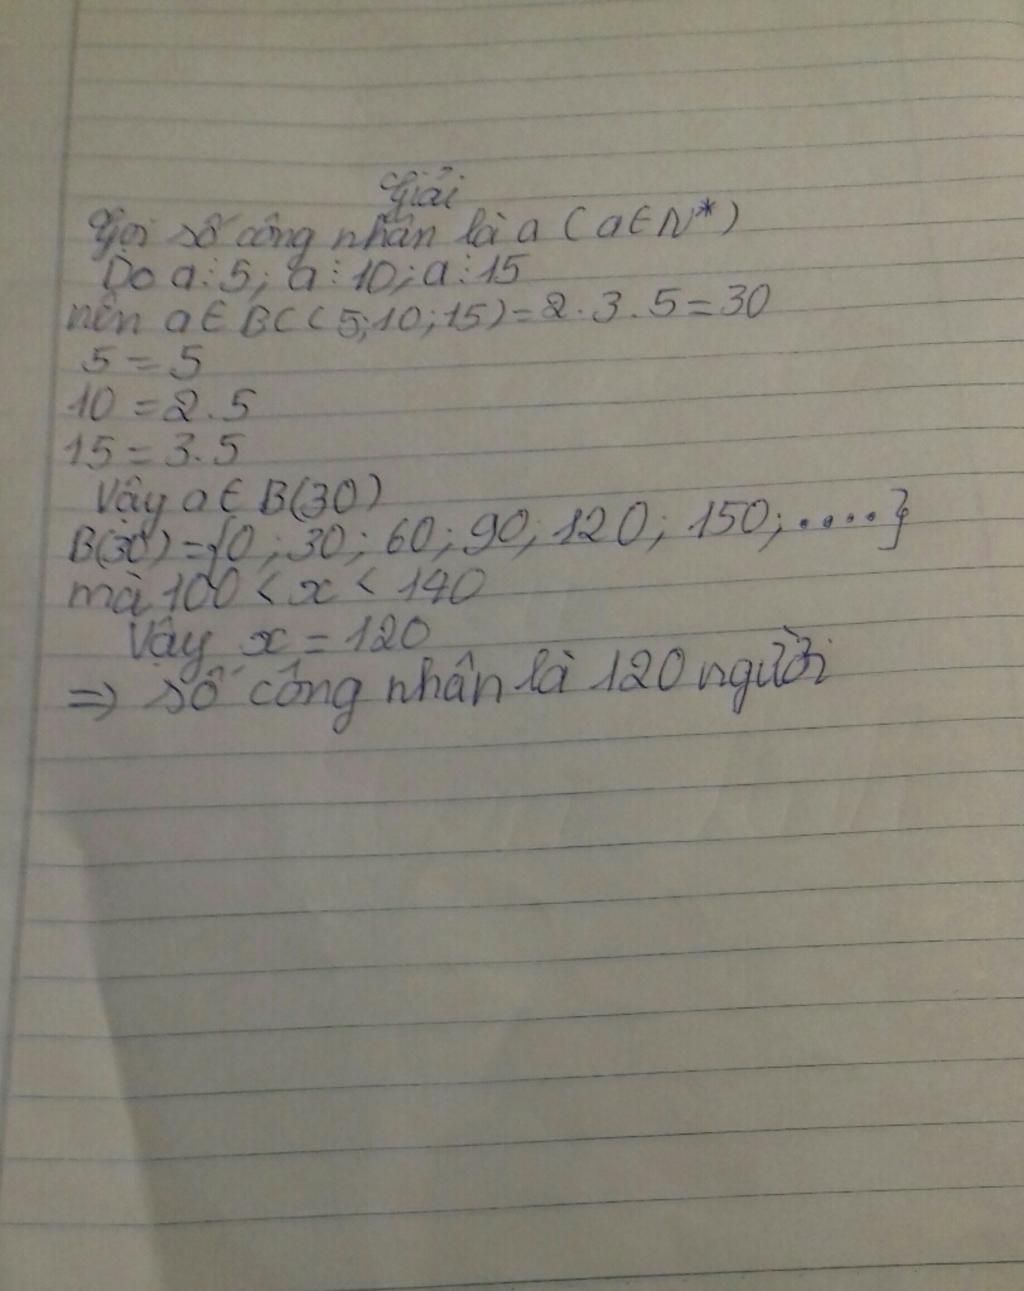 Giải
Gọi số công nhân là a (a∈N*)
Do a⋮5; a⋮10; a⋮15
nên a∈BC(5;10;15)=2.3.5=30
5=5
10=2.5
15=3.5
Vậy a∈B(30)
B(30)={0;30;60;90;120;150;....}
mà 100<x<140
Vậy x=120
=> số công nhân là 120 người